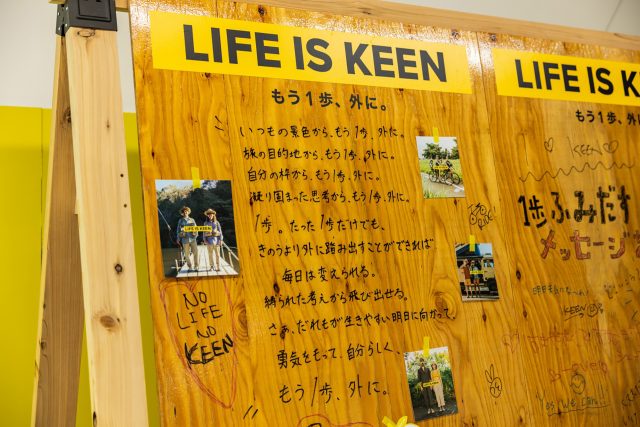 LIFE IS KEEN
もう1歩、外に。
いつもの景色から、もう1歩、外に。
旅の目的地から、もう1歩、外に。
自分の枠から、もう1歩、外に。
凝り固まった思考から、もう1歩、外に。
1歩。たった1歩だけでも、
きのうより外に踏み出すことができれば
毎日は変えられる。
縛られた考えから飛び出せる。
さぁ、だれもが生きやすい明日に向かって、
勇気をもって、自分らしく、
もう1歩、外に。
LIFE IS KEEN
NO
LIFE
NO
KEEN
LIFE IS K
もう1歩、外に
KEEN
1歩ふみだす
メッセージ
KEEN
Yes We Can!!